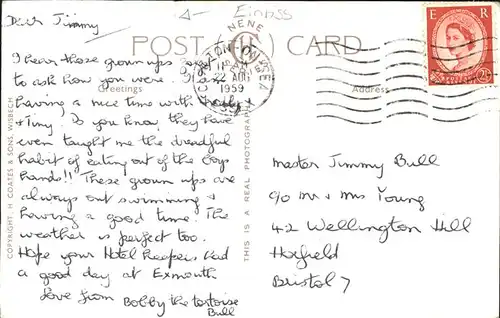 Dear Jimmy
Einriss
POST CARD
I hear those grown ups
to ask how you were. I am
Greetings
having a nice time with
+ Tiny. Do you know, they have
even taught me the dreadful
habit of eating out of the boys
hands!! These grown ups are
always out swimming +
having a good time! The
weather is perfect too.
Hope your Hotel Keepers had
a good day at Exmouth
Love from Bobby the tortoise
Bull
COPYRIGHT H COATES & SONS, WISBECH
THIS IS A REAL PHOTOGRAPH
NENE
22 AUG
1959
E R
2½
Address
Master Jimmy Bull
c/o Mr + Mrs Young
42 Wellington Hill
Horfield
Bristol 7